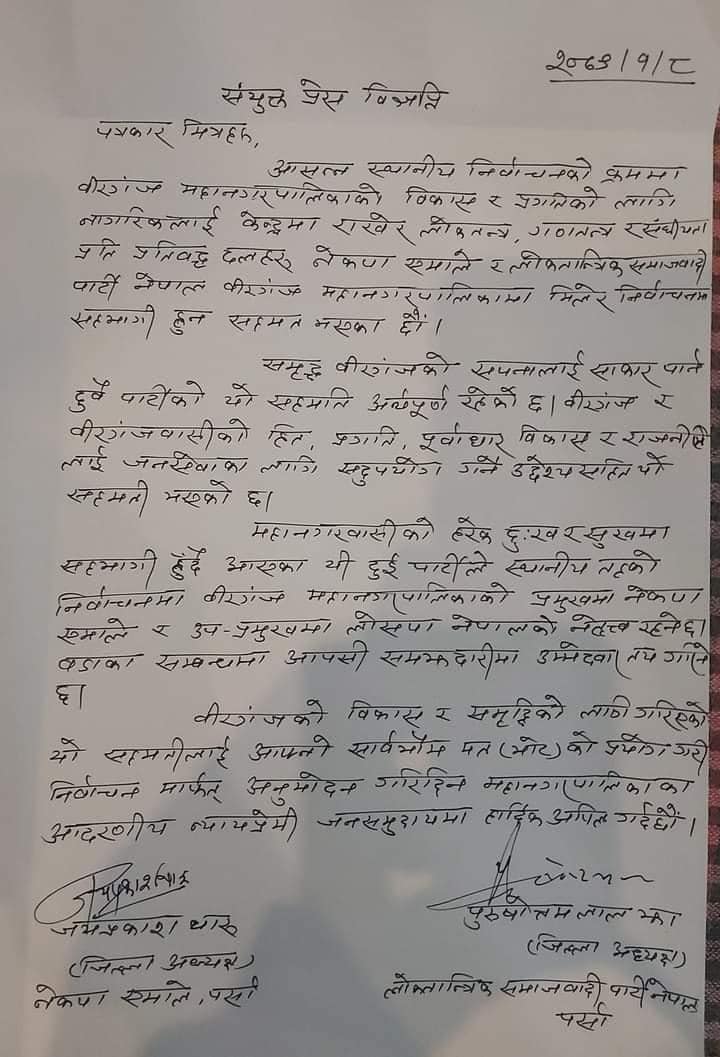 २०७९/१/८
संयुक्त प्रेस विज्ञप्ति
पत्रकार मित्रहरु,
आसन्न स्थानीय निर्वाचनको क्रममा
वीरगंज महानगरपालिकाको विकास र प्रगतिको लागि
नागरिकलाई केन्द्रमा राखेर लोकतन्त्र, गणतन्त्र र संघीयता
प्रति प्रतिवद्ध दलहरु नेकपा एमाले र लोकतान्त्रिक समाजवादी
पार्टी नेपाल वीरगंज महानगरपालिकामा मिलेर निर्वाचनमा
सहभागी हुन सहमत भएका छौं ।
समृद्ध वीरगंजको सपनालाई साकार पार्न
दुवै पार्टीको यो सहमति अर्थपूर्ण रहेको छ । वीरगंज र
वीरगंजवासीको हित, प्रगति, पूर्वाधार विकास र राजनीति
लाई जनसेवाका लागि सदुपयोग गर्ने उद्देश्य सहित यो
सहमती भएको छ ।
महानगरवासीको हरेक दुःख र सुखमा
सहभागी हुँदै आएका यी दुई पार्टीले स्थानीय तहको
निर्वाचनमा वीरगंज महानगरपालिकाको प्रमुखमा नेकपा
एमाले र उप-प्रमुखमा लोसपा नेपालको नेतृत्व रहनेछ ।
वडाका सम्बन्धमा आपसी समझदारीमा उम्मेदवार तय गरिने
छ ।
वीरगंजको विकास र समृद्धिको लागी गरिएको
यो सहमतीलाई आफ्नो सार्वभौम मत (भोट) को प्रयोग गरी
निर्वाचन मार्फत् अनुमोदन गरिदिन महानगरपालिकाका
आदरणीय न्यायप्रेमी जनसमुदायमा हार्दिक अपिल गर्दछौं ।
जयप्रकाश थारु
पुरुषोत्तम लाल झा
(जिल्ला अध्यक्ष)
(जिल्ला अध्यक्ष)
नेकपा एमाले, पर्सा
लोकतान्त्रिक समाजवादी पार्टी नेपाल
पर्सा